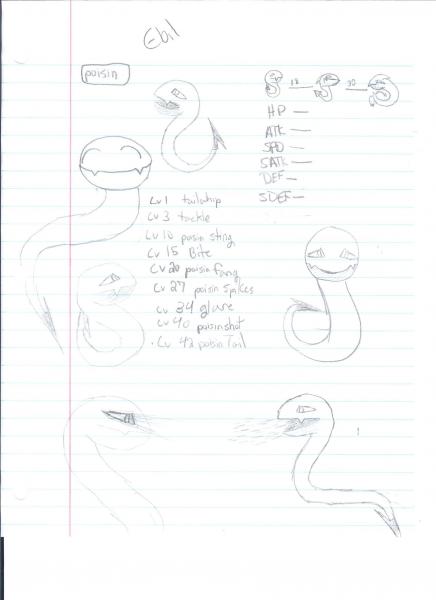 Ebil
poisin
18 30
HP —
ATK —
SPD —
SATK —
DEF —
SDEF —
Lv 1 tailwhip
Lv 3 tackle
Lv 10 poisin sting
Lv 15 Bite
Lv 20 poisin fang
Lv 27 poisin spikes
Lv 34 glare
Lv 40 poisinshot
Lv 42 poisin Tail